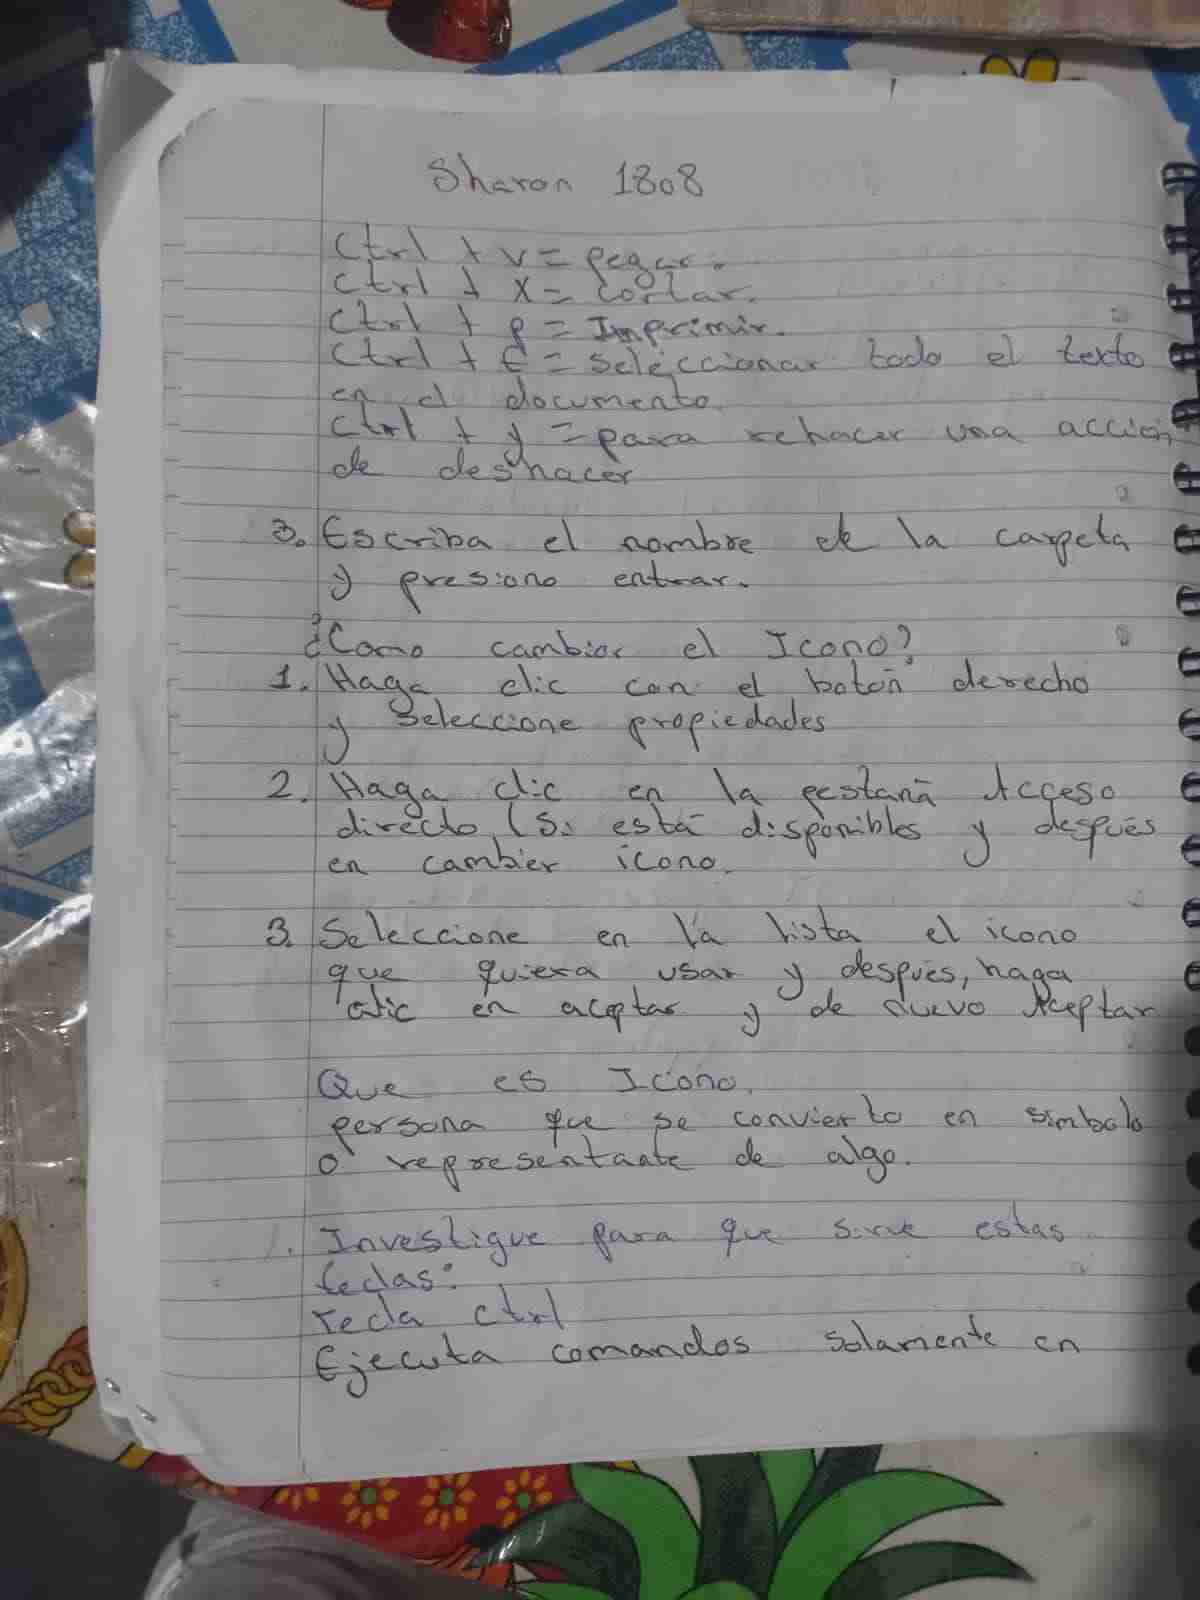 Sharon 1808
Ctrl + v = pegar.
Ctrl + x = cortar.
Ctrl + p = Imprimir.
Ctrl + E = seleccionar todo el texto
en el documento.
Ctrl + y = para rehacer una acción
de deshacer
3. Escriba el nombre de la carpeta
y presiono entrar.
¿Como cambiar el Icono?
1. Haga clic con el botón derecho
y seleccione propiedades
2. Haga clic en la pestaña Acceso
directo, (si está disponibles y después
en cambier icono.
3. Seleccione en la lista el icono
que quiera usar y después, haga
clic en aceptar y de nuevo Aceptar
Que es Icono.
persona que se convierto en simbolo
o representante de algo.
1. Investigue para que sirve estas
teclas:
Tecla ctrl
Ejecuta comandos solamente en